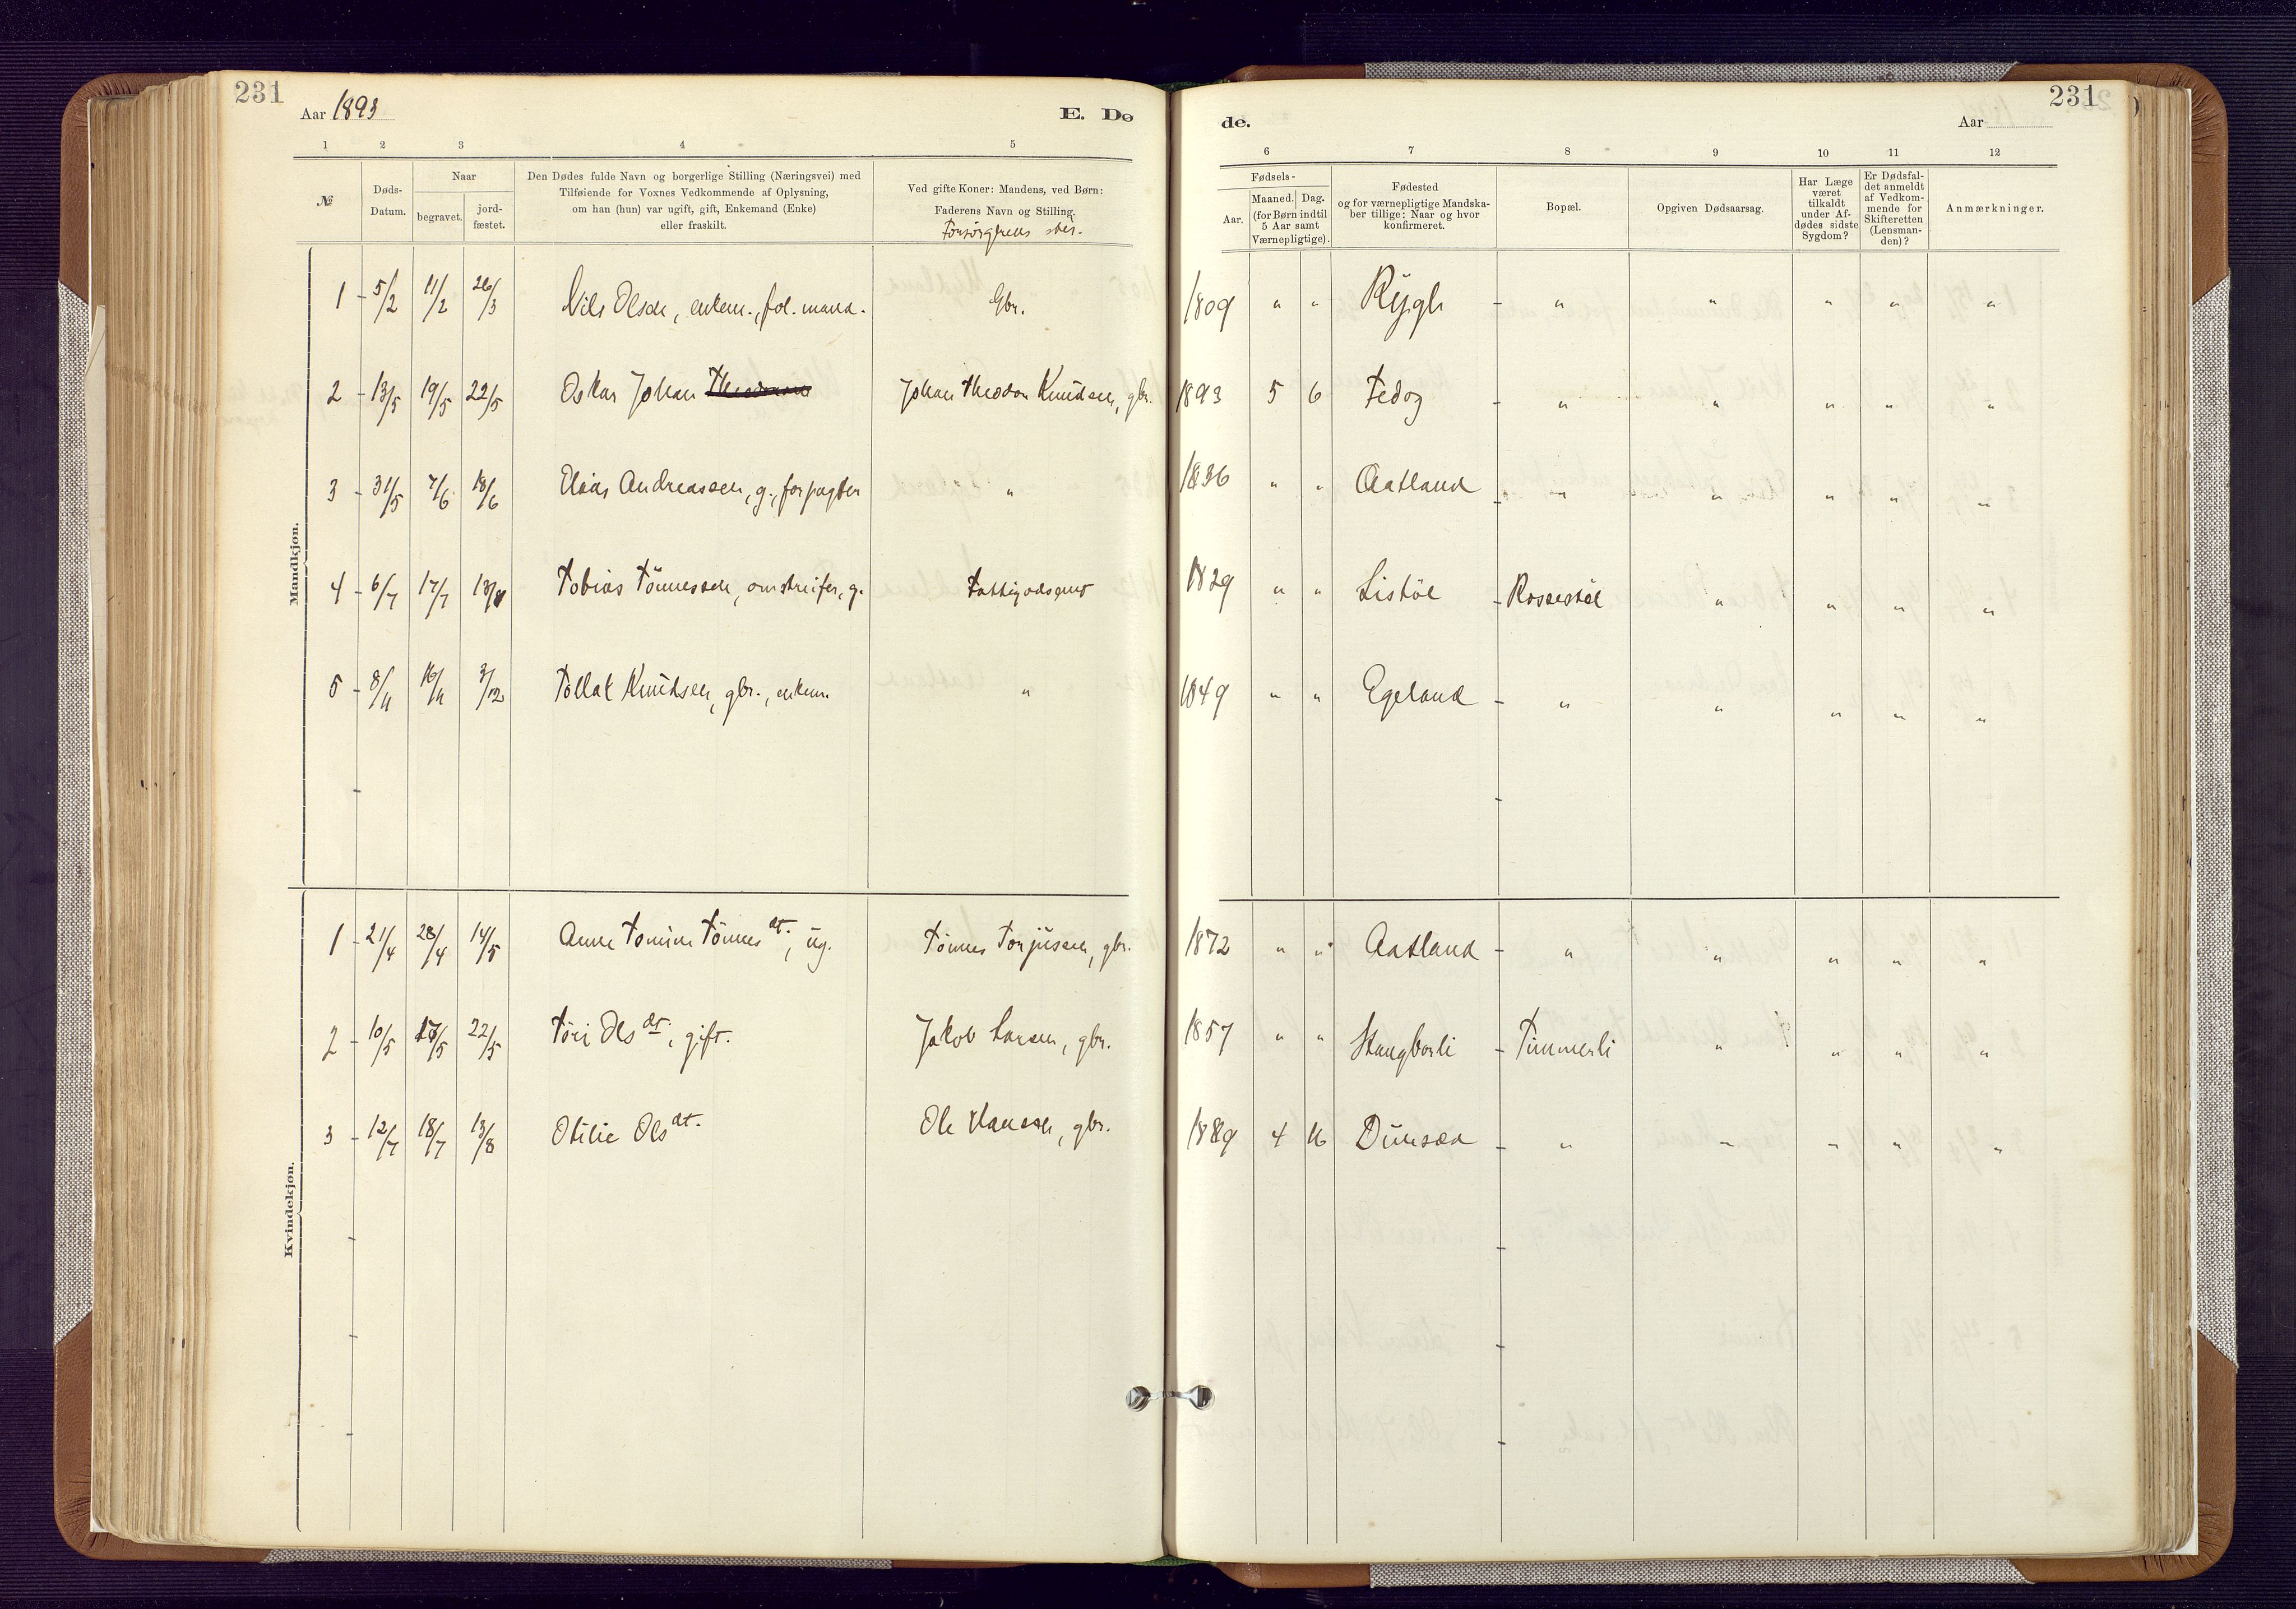 231
Aar 1893
E. Dø
de.
Aar
231
1 2 3 4 5 6 7 8 9 10 11 12
№
Døds-
Datum.
Naar
begravet.
jord-
fæstet.
Den Dødes fulde Navn og borgerlige Stilling (Næringsvei) med
Tilføiende for Voxnes Vedkommende af Oplysning,
om han (hun) var ugift, gift, Enkemand (Enke)
eller fraskilt.
Ved gifte Koner: Mandens, ved Børn:
Faderens Navn og Stilling.
Fødsels-
Aar.
Maaned. Dag.
(for Børn indtil
5 Aar samt
Værnepligtige).
Fødested
og for værnepligtige Mandska-
ber tillige: Naar og hvor
konfirmeret.
Bopæl.
Opgiven Dødsaarsag.
Har Læge
været
tilkaldt
under Af-
dødes sidste
Sygdom?
Er Dødsfal-
det anmeldt
af Vedkom-
mende for
Skifteretten
(Lensman-
den)?
Anmærkninger.
Mandkjøn.
1 - 5/2 11/2 26/3 Nils Olsen, enkem., fol. mand. Gbr. 1809 " " - " " " " "
2 - 13/5 19/5 22/5 Oskar Johan Johan Theodor Knudsen, gbr. 1893 5 6 Fedog - " " " " "
3 - 31/5 7/6 18/6 Elias Andreassen, g., forpagter " 1836 " " Aatland - " " " " "
4 - 6/7 17/7 13/8 Tobias Tönnessen, omstreifer, g. 1829 " " Listöl - Rossestöl " " " "
5 - 8/11 16/11 3/12 Tollak Knudsen, gbr., enkem. " 1849 " " Egeland - " " " " "
Kvindekjøn.
1 - 21/4 28/4 14/5 Anne Tomine Tönnesdt., ug. Tönnes Torjusen, gbr. 1872 " " Aatland - " " " " "
2 - 10/5 17/5 22/5 Töri Olsdt., gift. Jakob Larsen, gbr. 1857 " " Stangborli - Timmerli " " " "
3 - 12/7 18/7 13/8 Otilie Olsdt. Ole Hansen, gbr. 1889 4 16 Dunsæd - " " " " "